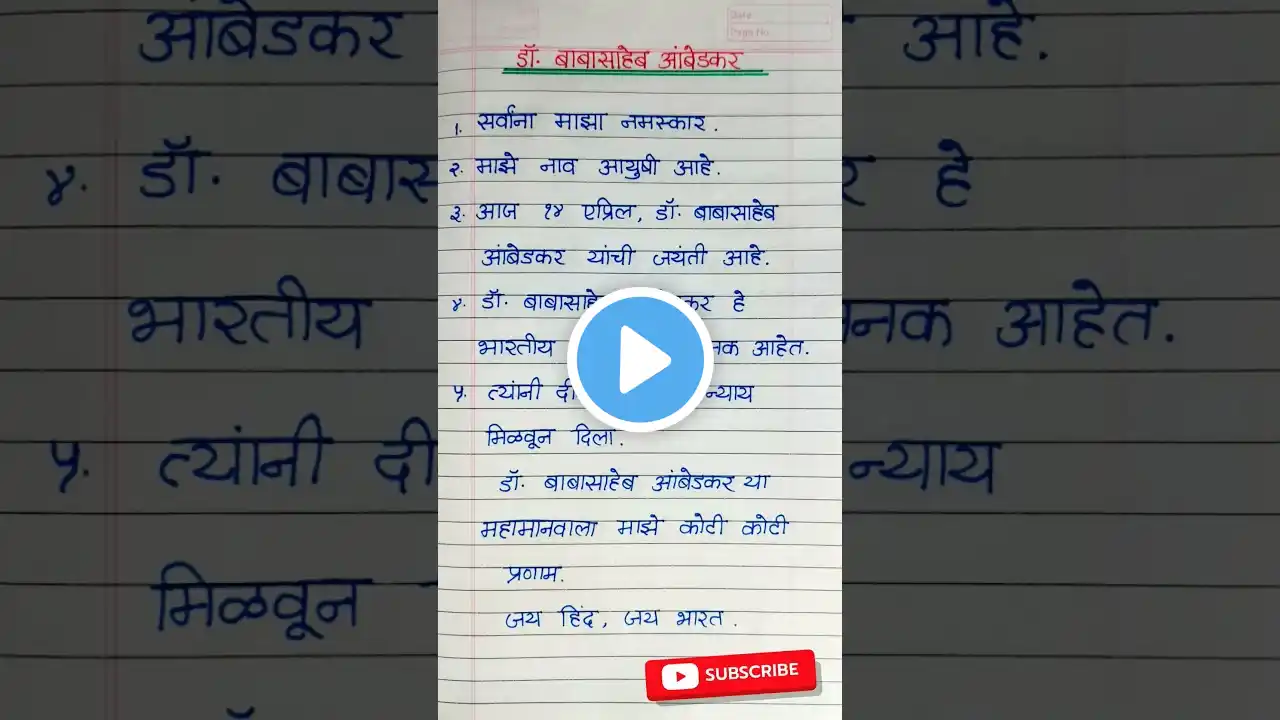 Date
Page No
डॉ. बाबासाहेब आंबेडकर
१. सर्वांना माझा नमस्कार.
२. माझे नाव आयुषी आहे.
३. आज १४ एप्रिल, डॉ. बाबासाहेब
आंबेडकर यांची जयंती आहे.
४. डॉ. बाबासाहे कर हे
भारतीय नक आहेत.
५. त्यांनी दी न्याय
मिळवून दिला.
डॉ. बाबासाहेब आंबेडकर या
महामानवाला माझे कोटी कोटी
प्रणाम.
जय हिंद, जय भारत.
SUBSCRIBE
आंबेडकर आहे.
४. डॉ. बाबास र हे
भारतीय नक आहेत.
५. त्यांनी दी न्याय
मिळवून